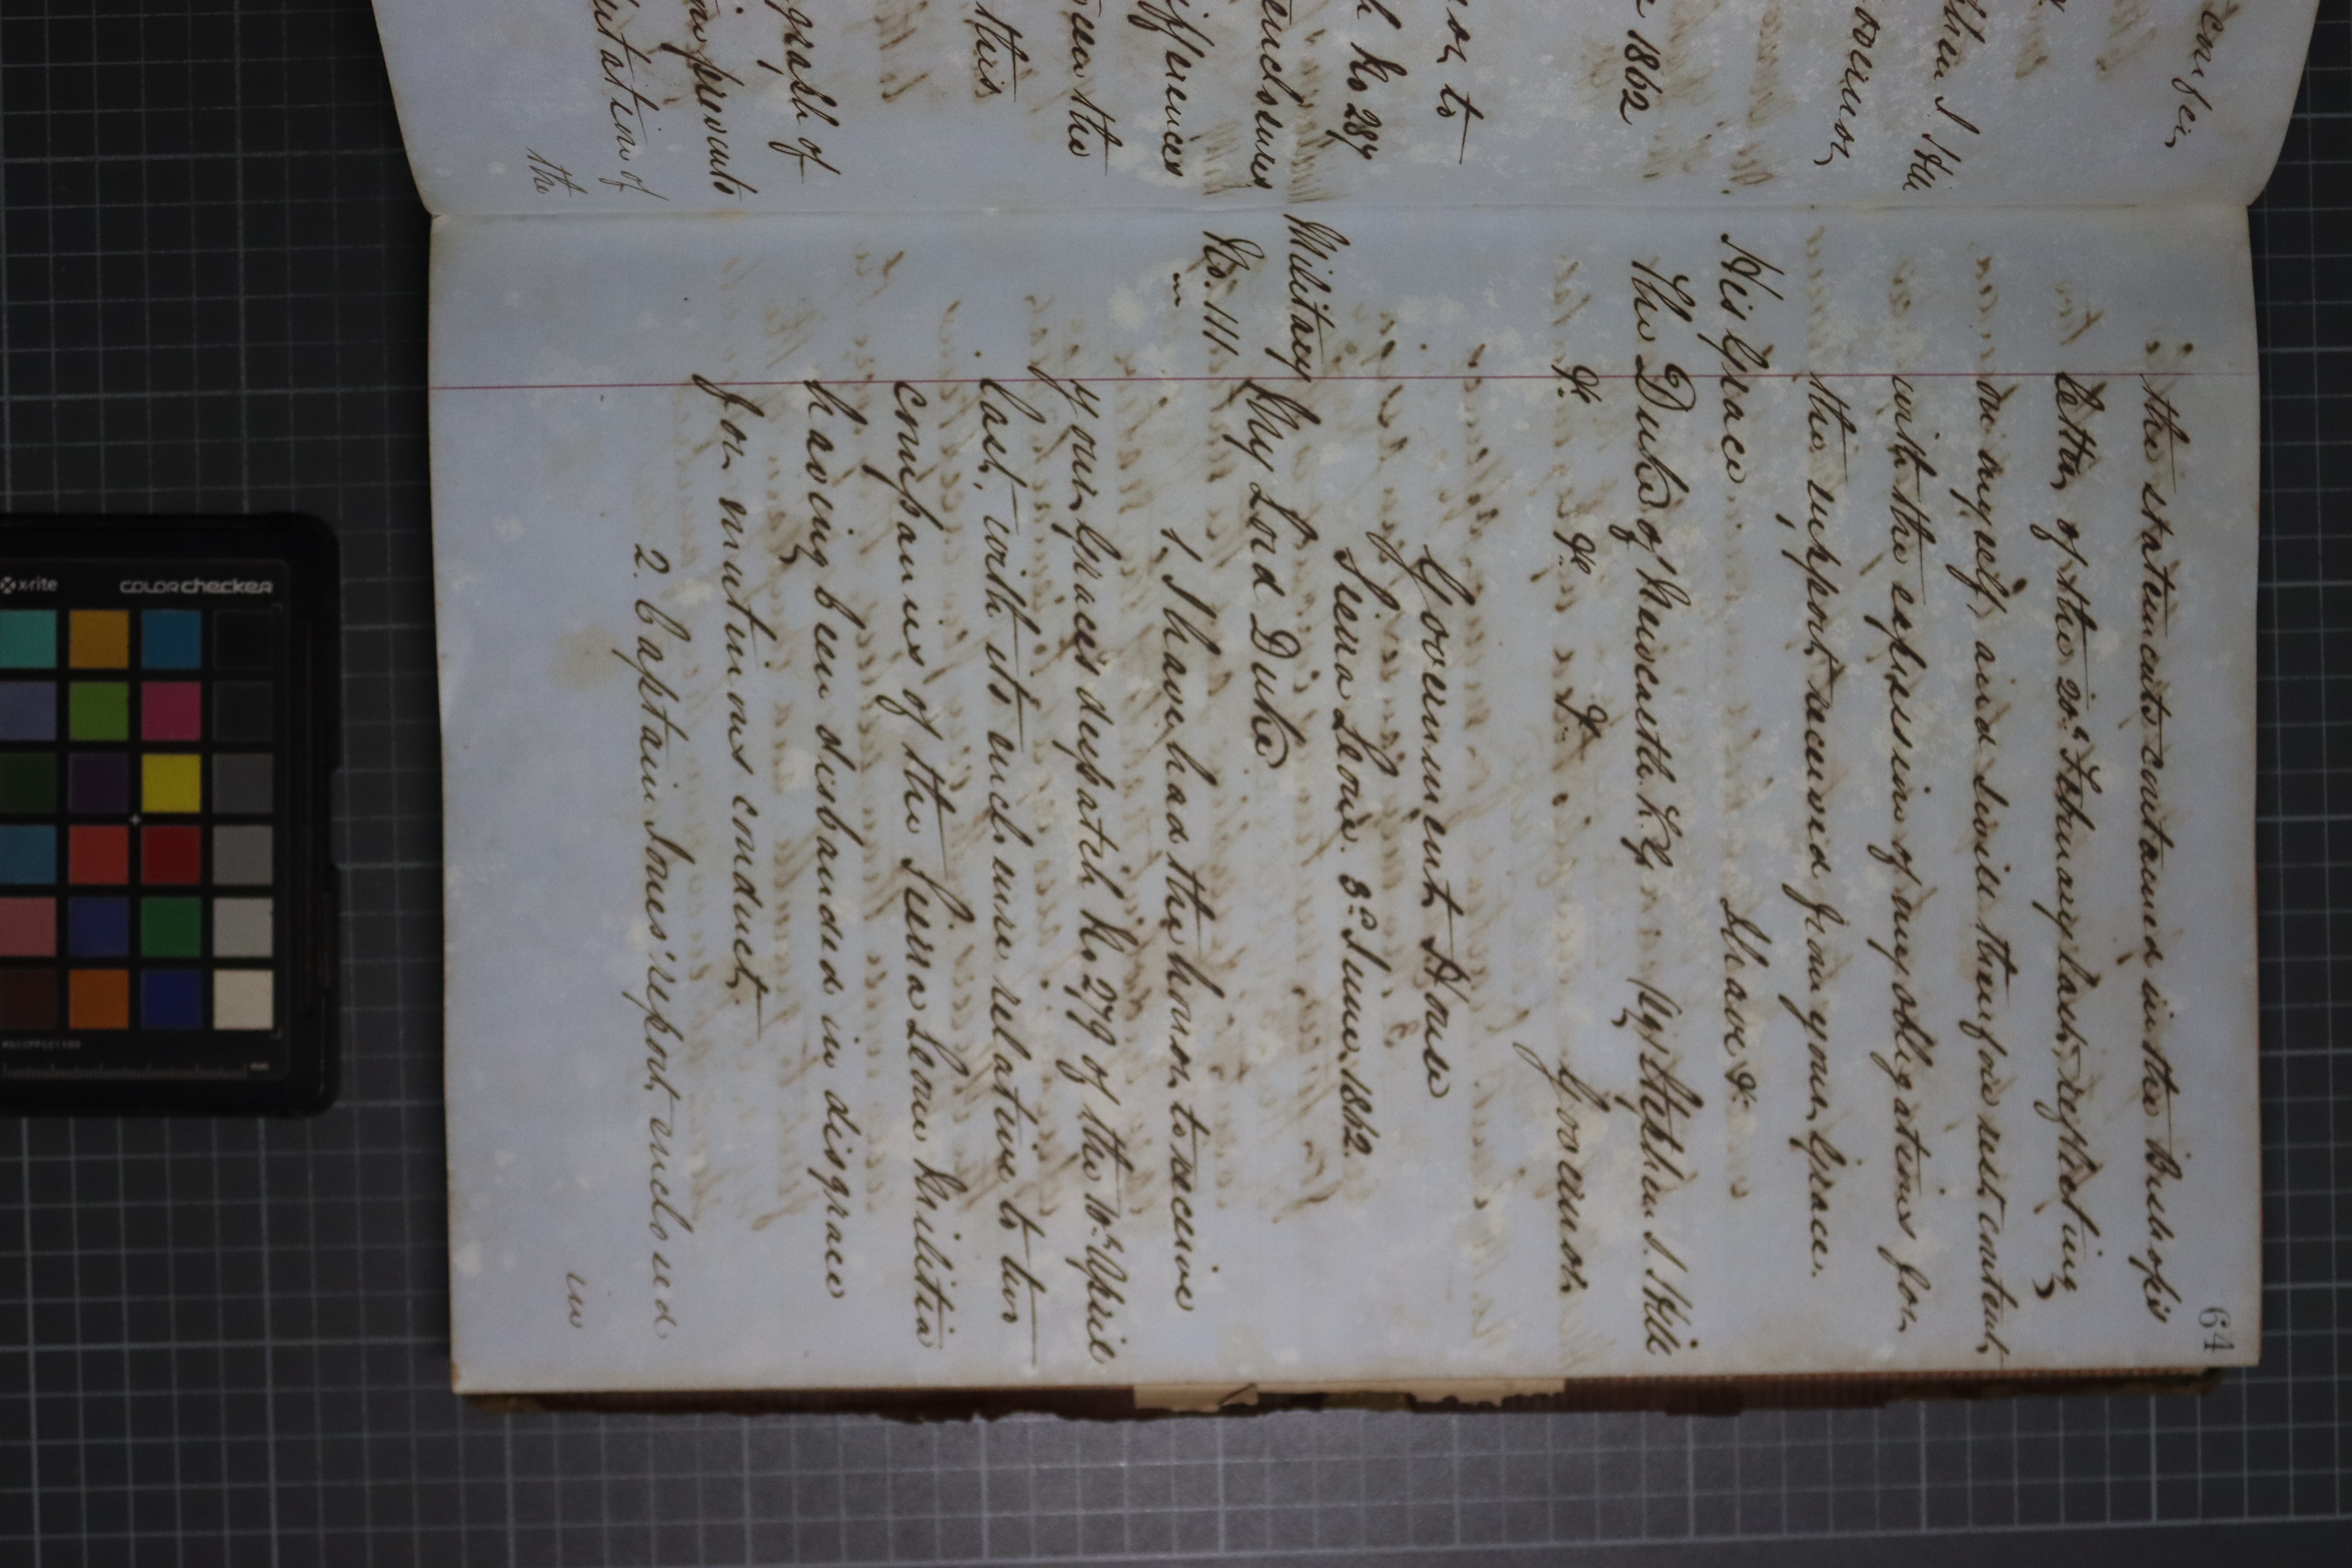 confer
then I Hill
overnor
1862
or to
h No 284
enclosures
ifferences
een the
this
graph of
prevents
utation of
the
64
the statements contained in the Bishop's
letter of the 20th February last, respecting
myself, and I will therefore rest content
with the expression of my obligations for
the support received from your Grace.
I have &c
His Grace
The Duke of Newcastle K.G. (Sg) Stephen J. Hill
&c &c &c Governor
Government House
Sierra Leone. 3d June 1862
Military
No. 111
My Lord Duke
1. I have had the honor to receive
your Grace's despatch No 279 of the 10th April
last, with its enclosure relative to two
companies of the Sierra Leone Militia
having been disbanded in disgrace
for mutinous conduct.
2. Captain Jones' report enclosed
in
x-rite colorchecker